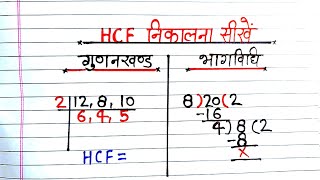 HCF निकालना सीखें
गुणनखण्ड
2 | 12, 8, 10
6, 4, 5
HCF =
भागविधि
8 ) 20 ( 2
-16
4 ) 8 ( 2
-8
×